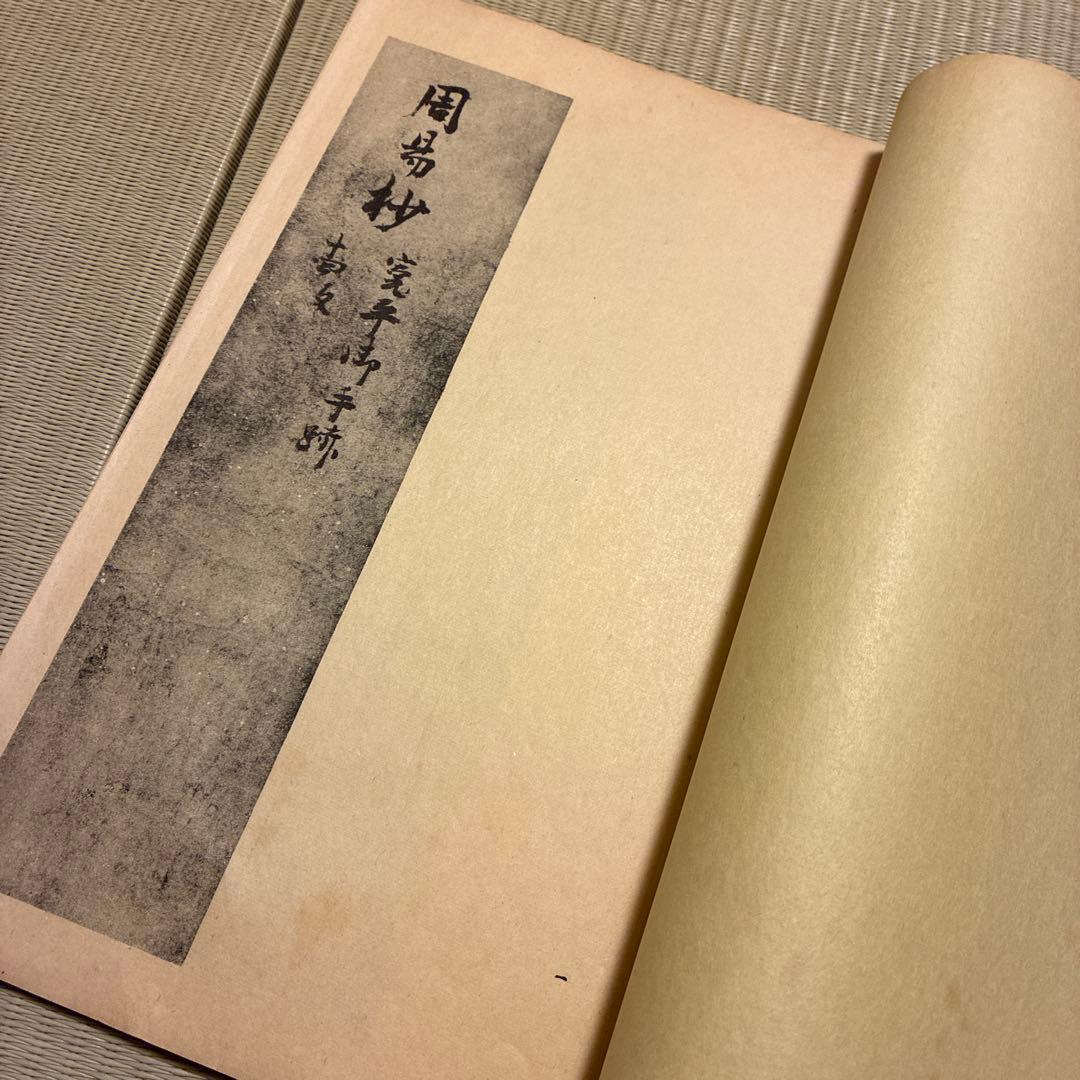 周易抄
寛平御手跡
一